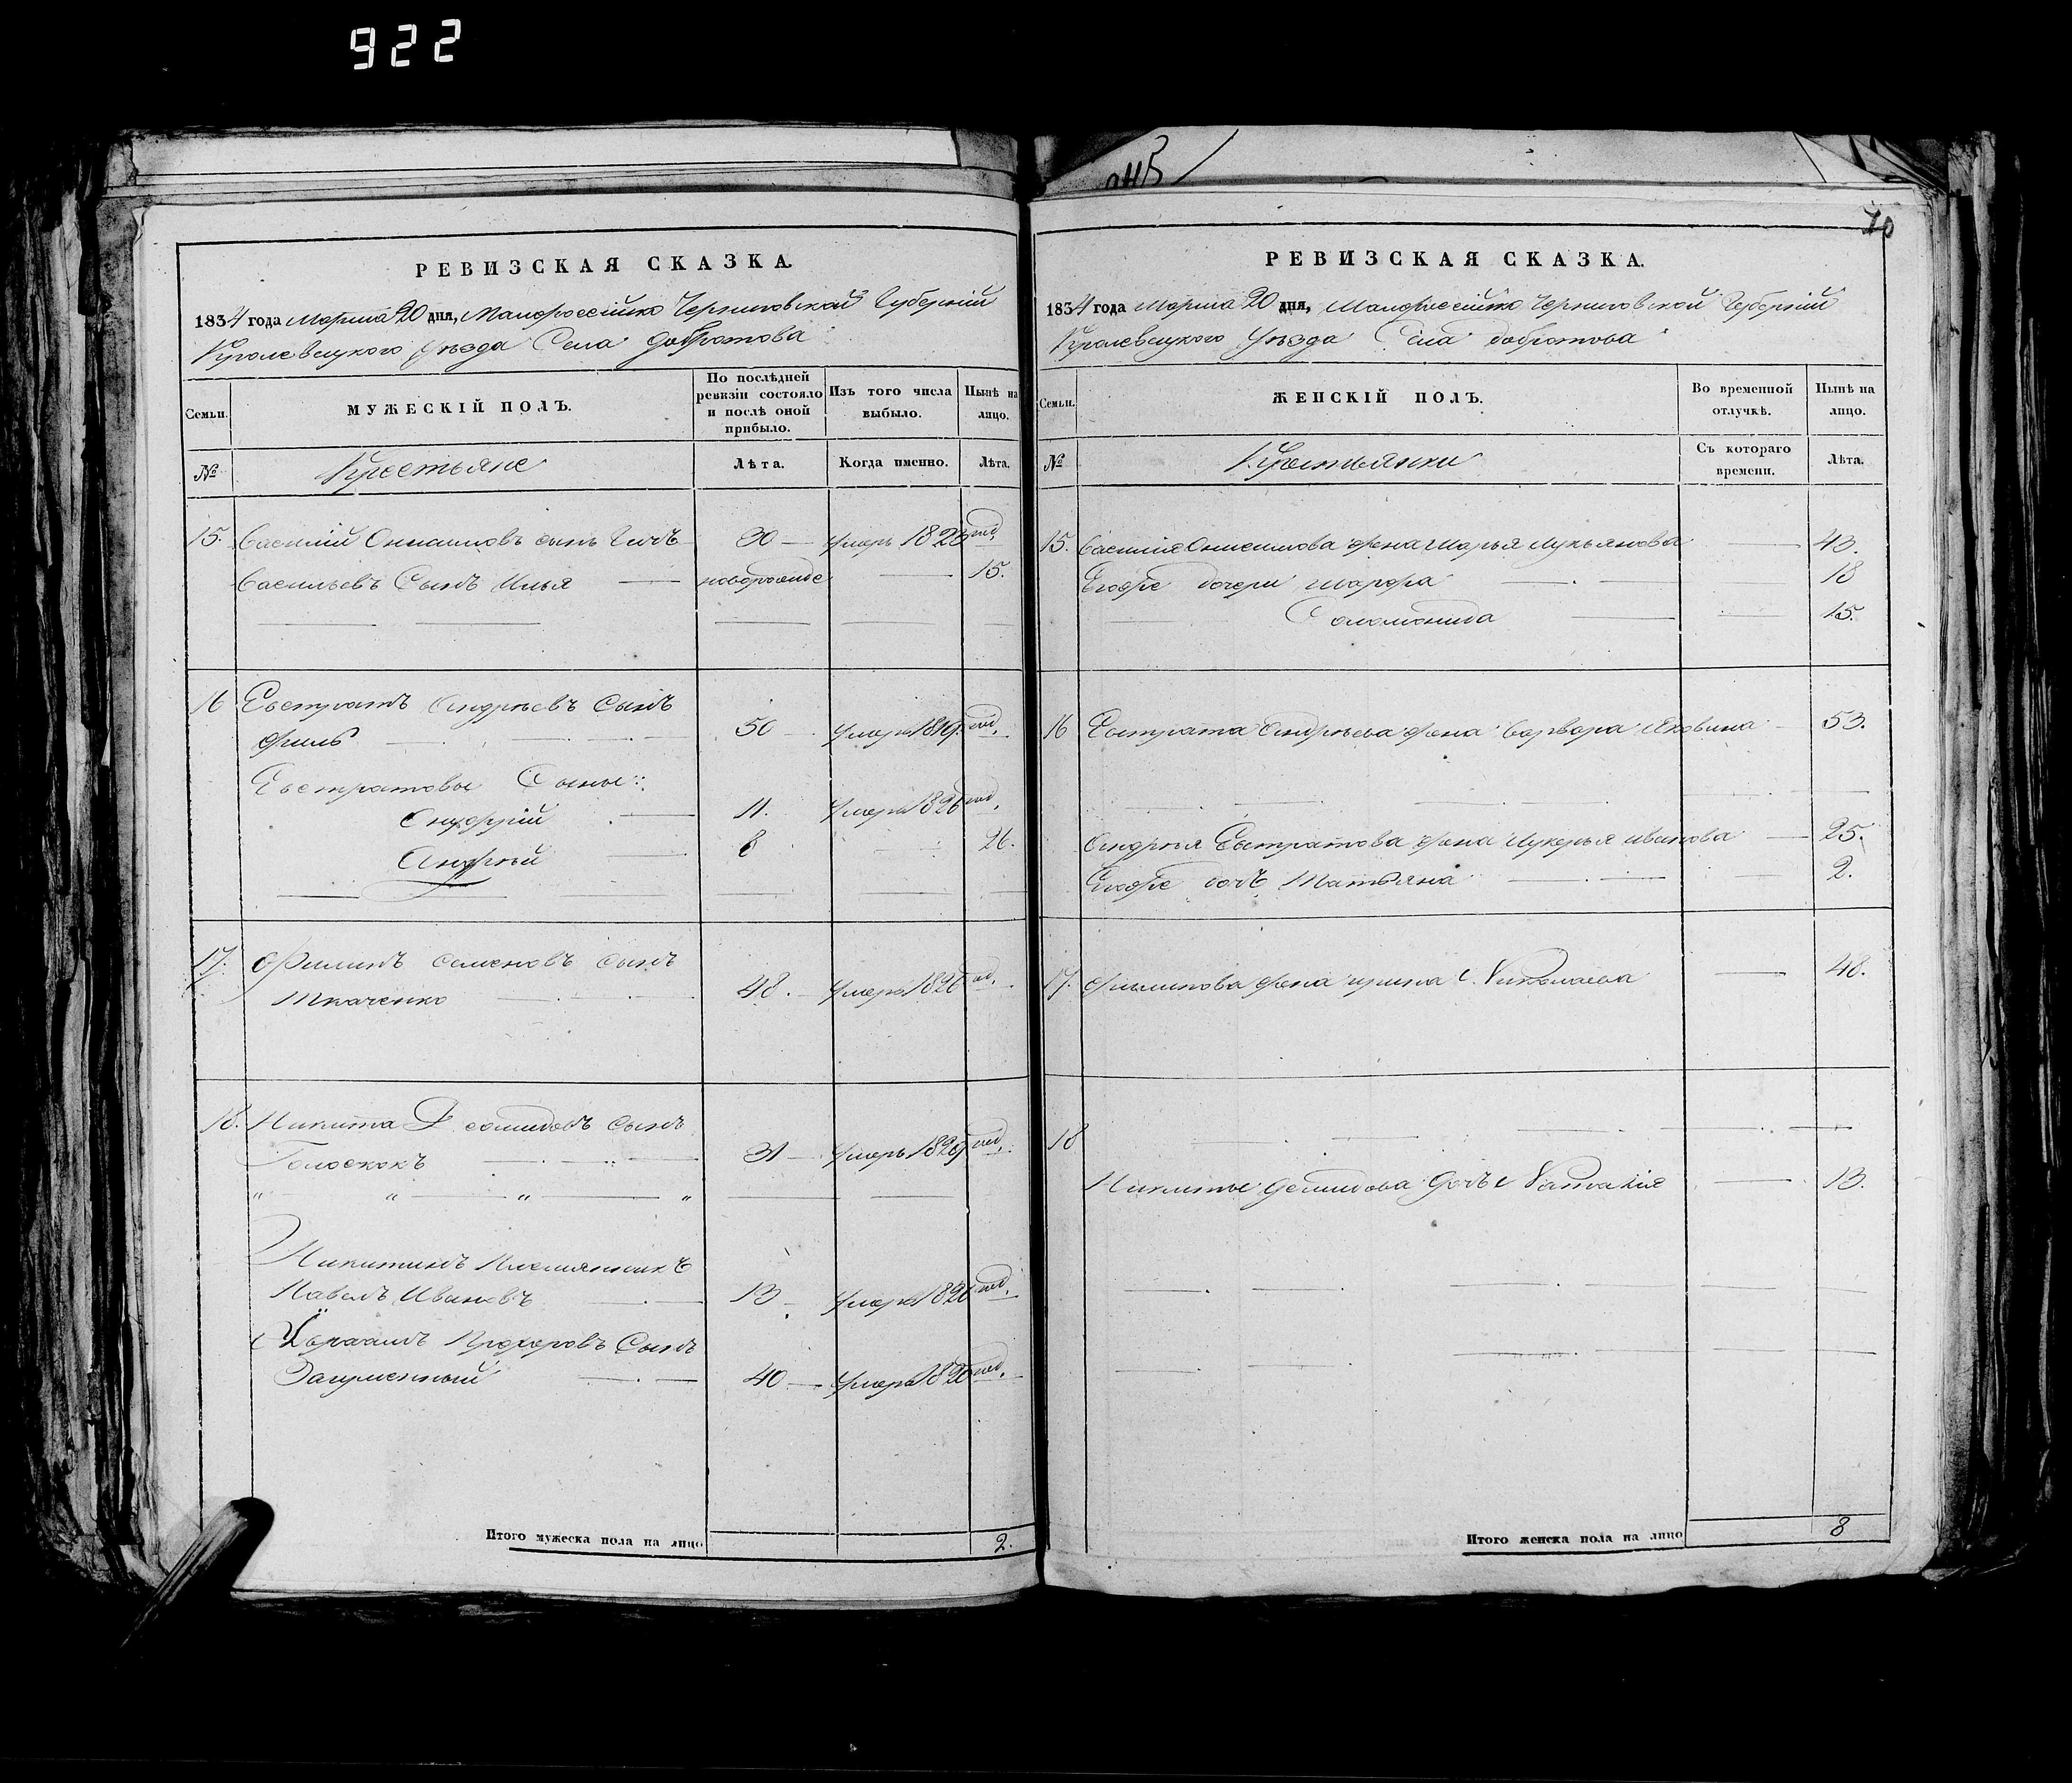 922
РЕВИЗСКАЯ СКАЗКА.
1834 года Марта 20 дня, Малороссійско Черниговской Губерніи
Кролевецкого Уѣзда Села Добротова
Семьи.
МУЖЕСКІЙ ПОЛЪ.
По послѣдней ревизіи состояло и послѣ оной прибыло.
Изъ того числа выбыло.
Нынѣ на лицо.
№
Крестьяне
Лѣта.
Когда именно.
Лѣта.
15. Василий сынъ 30 умеръ 1823 год.
Васильевъ Сынъ Илья 15.
16 Евстратъ Андрѣевъ Сынъ
50 умеръ 1819 год.
Евстратовы Сыны:
11. умеръ 1826 год.
Андрѣй 8 26.
17. Филипъ Семеновъ сынъ
Ткаченко 48. умеръ 1826 год.
18. Никита Демидовъ Сынъ
Голоскокъ 31 умеръ 1829 год.
" " " "
Никитинъ Племянникъ
Павелъ Ивановъ 13 умеръ 1826 год.
Прохоровъ Сынъ
Загуменный 40 умеръ год.
Итого мужеска пола на лицо 2.
70
РЕВИЗСКАЯ СКАЗКА.
1834 года Марта 20 дня, Малороссійско Черниговской Губерніи
Кролевецкого Уѣзда Села Добротова
Семьи.
ЖЕНСКІЙ ПОЛЪ.
Во временной отлучкѣ.
Нынѣ на лицо.
№
Крестьянки
Съ котораго времени.
Лѣта.
15. Василия Онисимова жена Марья Лукьянова 43.
Егоже дочери Марфа 18
Соломонида 15.
16 Евстрата Андрѣева жена Варвара 53.
Андрѣя Евстратова жена Лукерья Иванова 25.
Егоже дочь Татьяна 2.
17. Филипова жена Ирина Николаева 48.
18
Никиты Демидова Дочь Наталія 13.
Итого женска пола на лицо 8